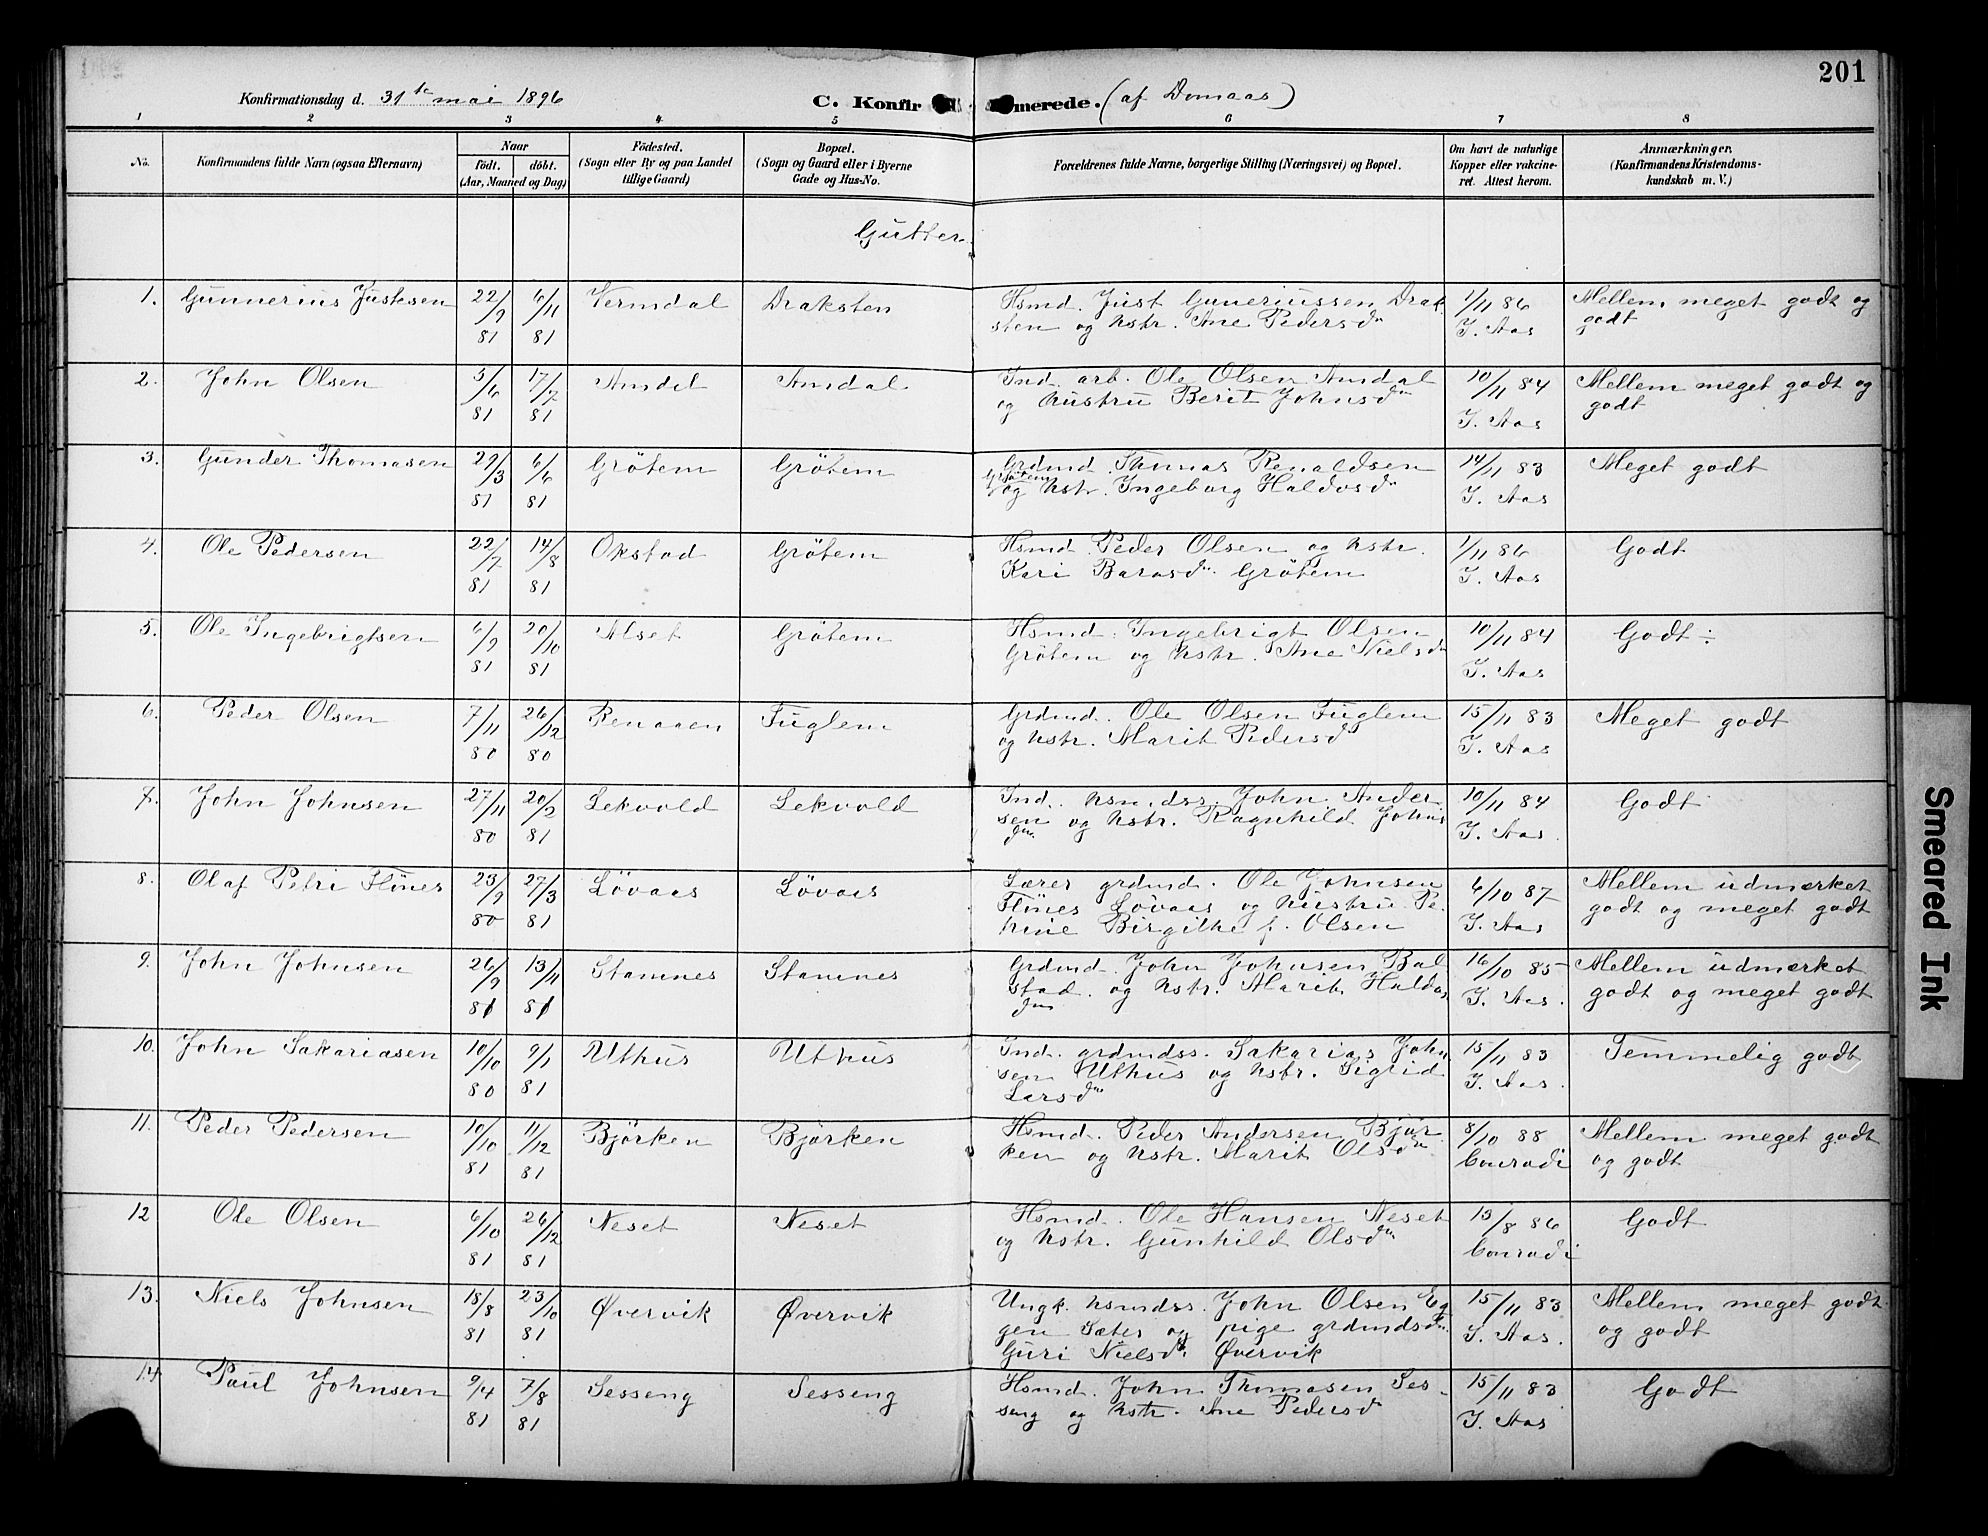 201
Konfirmationsdag d. 31te mai 1896 C. Konfir merede. (af Domaas)
1 2 3 4 5 6 7 8
No. Konfirmandens fulde Navn (ogsaa Efternavn) Naar födt. döbt. (Aar, Maaned og Dag) Födested. (Sogn eller By og paa Landet tillige Gaard) Bopæl. (Sogn og Gaard eller i Byerne Gade og Hus-No. Forældrenes fulde Navne, borgerlige Stilling (Næringsvei) og Bopæl. Om havt de naturlige Kopper eller vakcineret. Attest herom. Anmærkninger. (Konfirmandens Kristendomskundskab m. V.)
Gutter.
1. Gunnerius Justesen 22/9 81 6/11 81 Vermdal Draksten Hsmd. Just Guneriussen Drak
sten og hstr. Ane Pedersdtr 1/11 86 J. Aas Mellem meget godt og
godt
2. John Olsen 3/6 81 17/7 81 Amdal Amdal Ind. arb. Ole Olsen Amdal
og hustru Berit Johnsd 10/11 84 J. Aas Mellem meget godt og
godt
3. Gunder Thomasen 29/3 81 6/6 81 Grötem Grötem Grdmd. Thomas Renaldsen
Grötem og hstr. Ingeborg Haldosd 14/11 83 J. Aas Meget godt
4. Ole Pedersen 22/7 81 14/8 81 Okstad Grötem Hsmd. Peder Olsen og hstr.
Kari Barosd. Grötem 1/11 86 J. Aas Godt
5. Ole Ingebrigtsen 6/9 81 20/10 81 Alset Grötem Hsmd. Ingebrigt Olsen
Grötem og hstr. Ane Nielsd 10/11 84 J. Aas Godt ÷
6. Peder Olsen 7/11 80 26/12 80 Renaaen Fuglem Grdmd. Ole Olsen Fuglem
og hstr. Marit Pedersd 15/11 83 J. Aas Meget godt
7. John Johnsen 27/11 80 20/2 81 Lekvold Lekvold Ind. hsmdss. John Ander
sen og hstr. Ragnhild Johns
dtr 10/11 84 J. Aas. Godt
8. Olaf Petri Flönes 23/9 80 27/3 81 Lövaas Lövaas Lærer grdmd. Ole Johnsen
Flönes Lövaas og hustru Pe-
trine Birgithe f. Olsen 6/10 87 J. Aas Mellem udmærket
godt og meget godt
9. John Johnsen 26/9 81 13/11 81 Stamnes Stamnes Grdmd. John Johnsen Bal
stad. og hstr. Marit Haldos
dtr 16/10 85 J. Aas. Mellem udmærket
godt og meget godt
10. John Sakariasen 10/10 80 9/1 81 Uthus Uthus Ind. grdmdss. Sakarias John
sen Uthus og hstr. Sigrid
Larsd 15/11 83 J. Aas. Temmelig godt
11. Peder Pedersen 10/10 81 11/12 81 Björken Björken Hsmd. Peder Andersen Björ
ken og hstr. Marit Olsd 8/10 88 Conradi Mellem meget godt
og godt
12 Ole Olsen 6/10 81 26/12 81 Neset Neset Hsmd. Ole Hansen Neset
og hstr. Gunhild Olsd 13/8 86 Conradi Godt
13. Niels Johnsen 18/8 81 23/10 81. Øvervik Øvervik Ungk. hsmdss. John Olsen Eg
gen Sæter og pige grdmdsd
Guri Nielsd. Øvervik 15/11 83 J. Aas. Mellem meget godt
og godt
14 Paul Johnsen 9/4 81 7/8 81 Sesseng Sesseng Hsmd. John Thomasen Ses-
seng og hstr. Ane Pedersd 15/11 83 J. Aas Godt
Smeared Ink